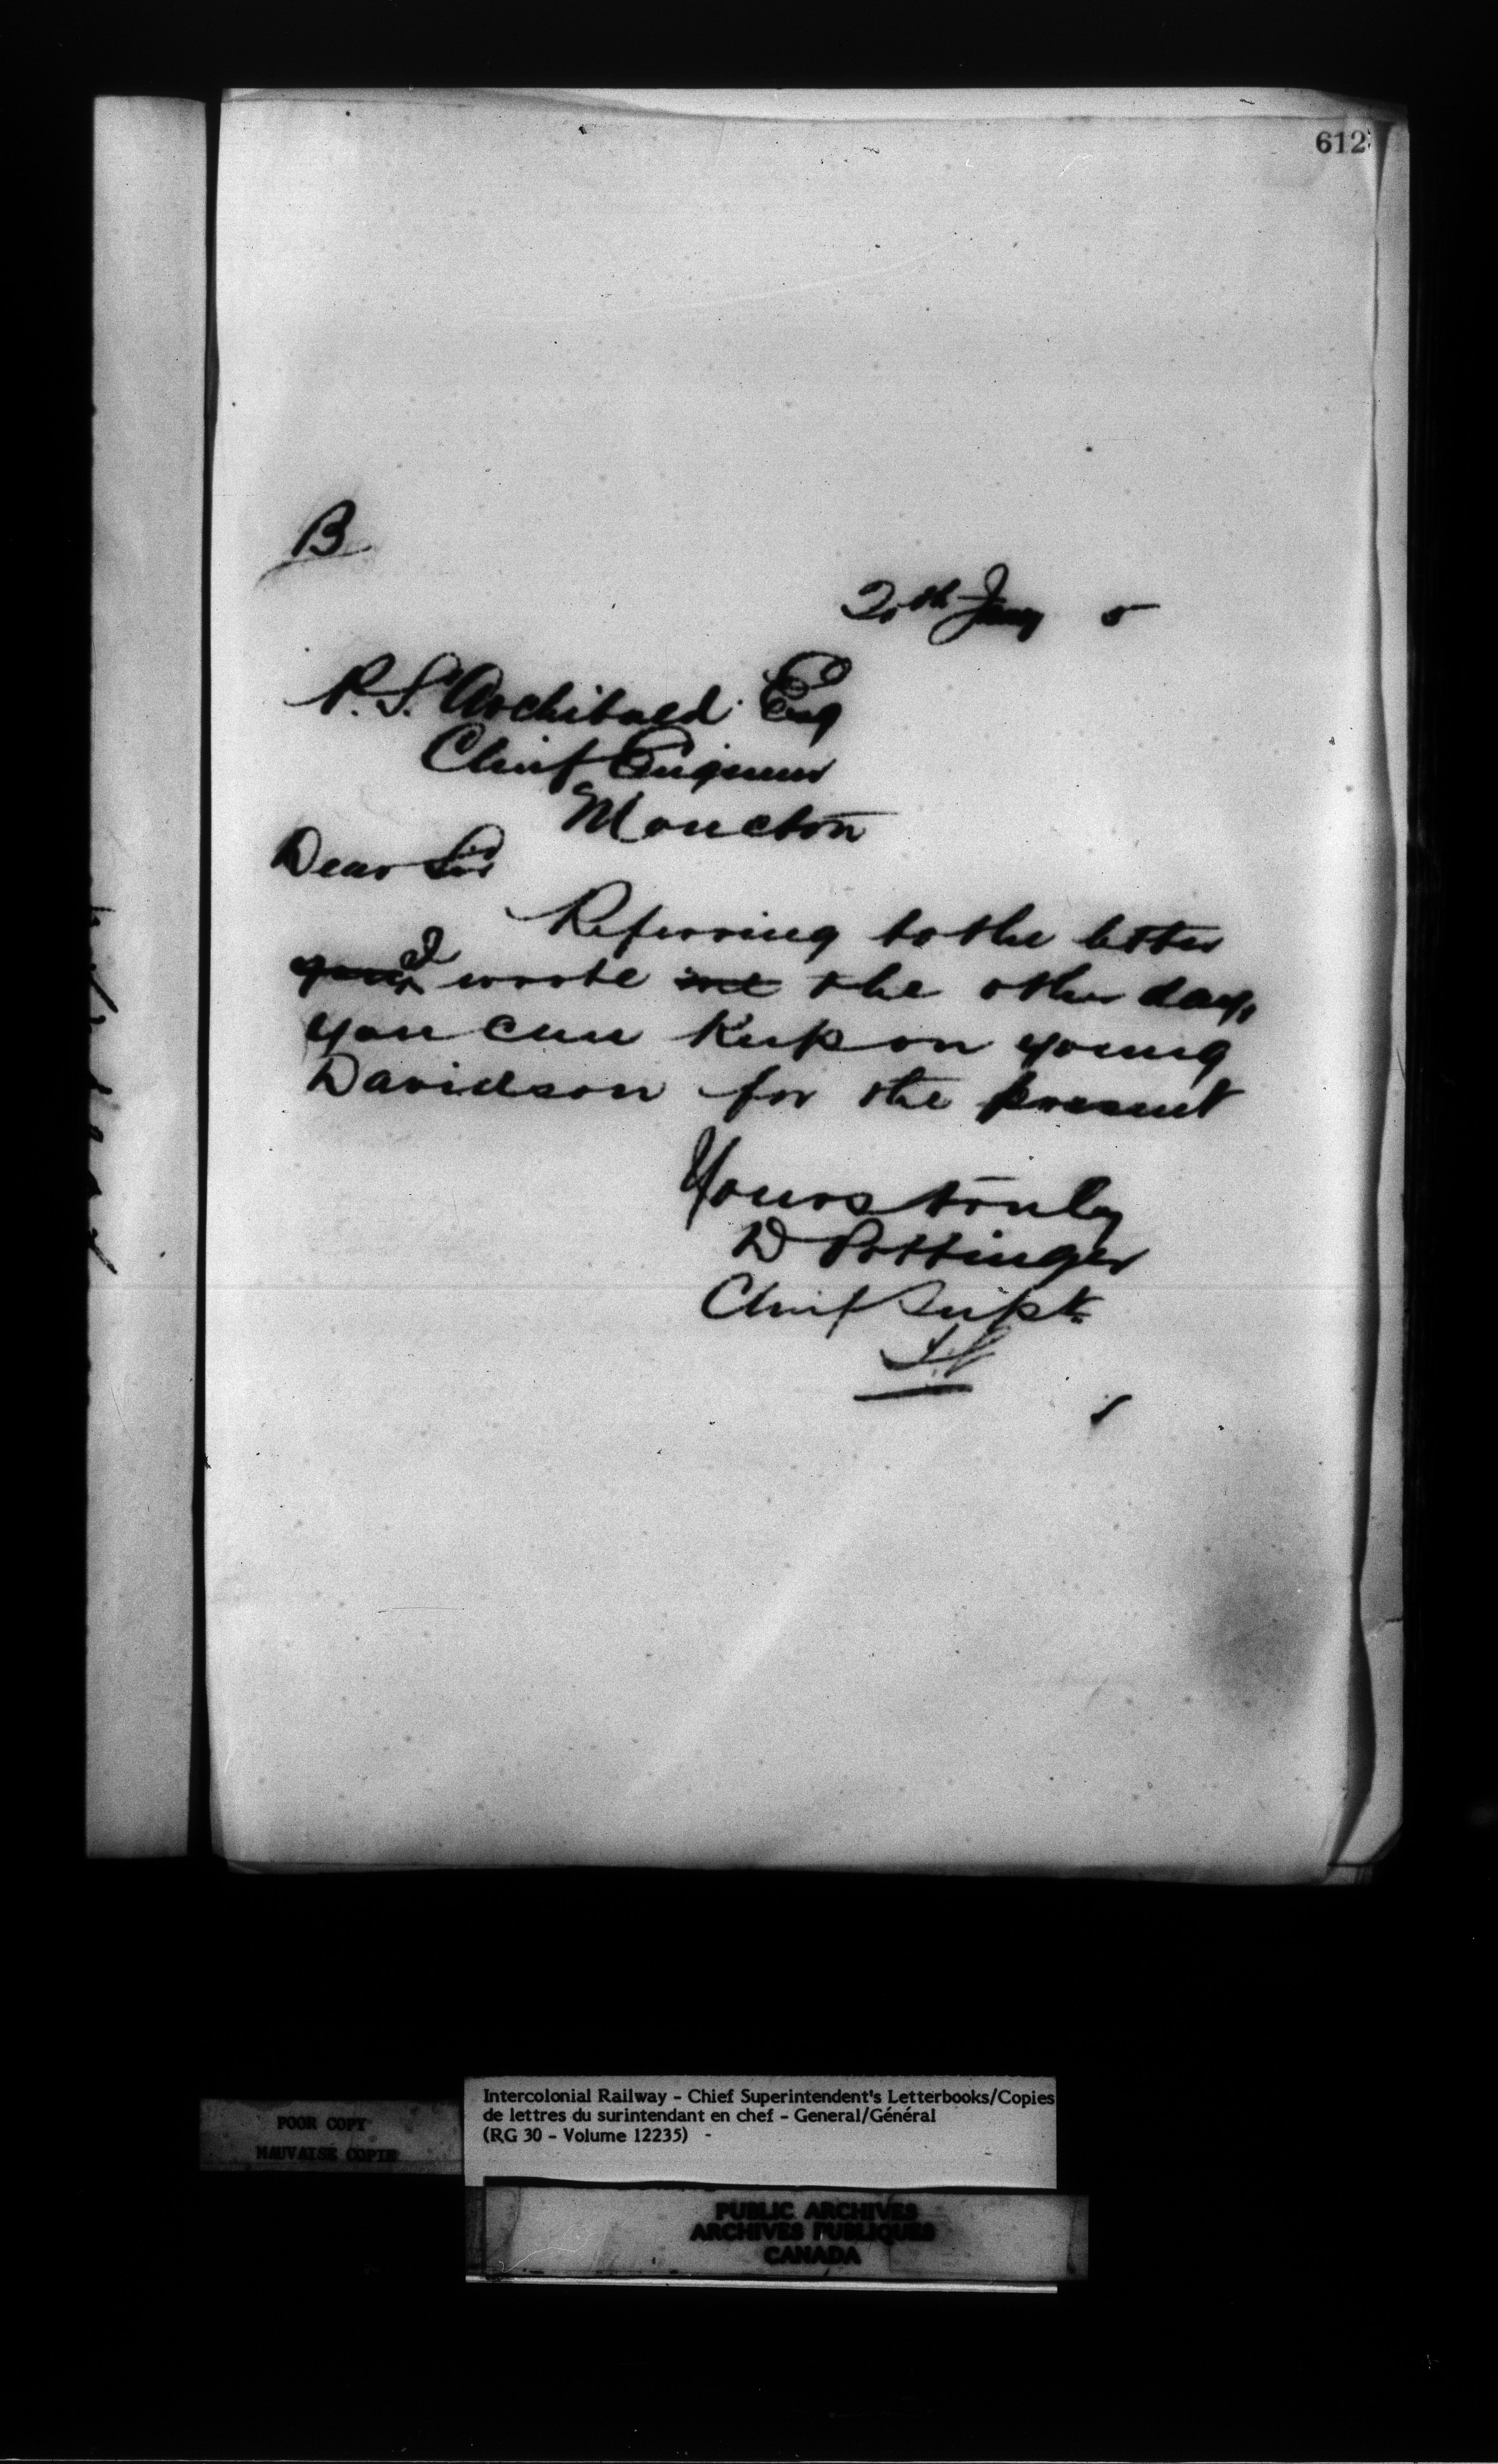 612
B
20th Jany 5
P. S. Archibald Esq
Chief Engineer
Moncton
Dear Sir
Referring to the letter
you I wrote me the other day,
you can keep on young
Davidson for the present
Yours truly
D Pottinger
Chief Supt.
POOR COPY
MAUVAISE COPIE
Intercolonial Railway - Chief Superintendent's Letterbooks/Copies
de lettres du surintendant en chef - General/Général
(RG 30 - Volume 12235) -
PUBLIC ARCHIVES
ARCHIVES PUBLIQUES
CANADA